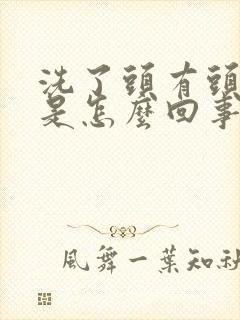 洗了頭有頭
是怎麼回事
風舞一葉知秋